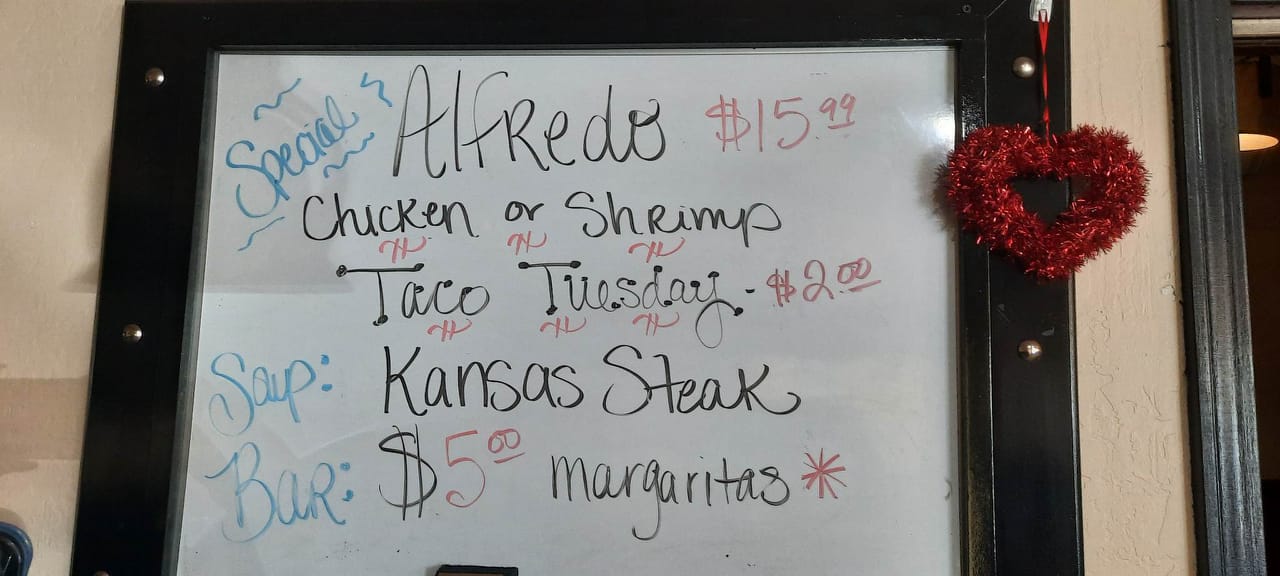 Special Alfredo $15.99
Chicken or Shrimp
Taco Tuesday - $2.00
Soup: Kansas Steak
Bar: $5.00 margaritas *